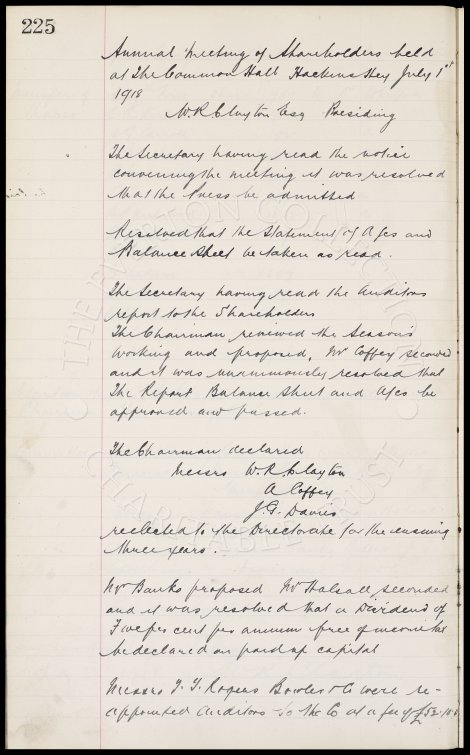 225
Annual Meeting of Shareholders held
at The Common Hall Hackins Hey July 1st
1918
W.R. Clayton Esq Presiding
The Secretary having read the notice
convening the meeting it was resolved
that the Press be admitted
Resolved that the Statement of A/cs and
Balance Sheet be taken as read.
The Secretary having read the Auditors
report to the Shareholders
The Chairman reviewed the Season's
working and proposed, Mr Coffey seconded
and it was unanimously resolved that
The Report Balance Sheet and A/cs be
approved and passed.
The Chairman declared
Messrs W.R. Clayton
A Coffey
J.G. Davies
reelected to the Directorate for the ensuing
three years.
Mr Banks proposed Mr Halsall seconded
and it was resolved that a Dividend of
Five per cent per annum free of income tax
be declared on paid up capital
Messrs T. T. Rogers Bowler & Co were re-
appointed Auditors to the Co at a fee of £52-10-0
THE EVERTON COLLECTION
CHARITABLE TRUST